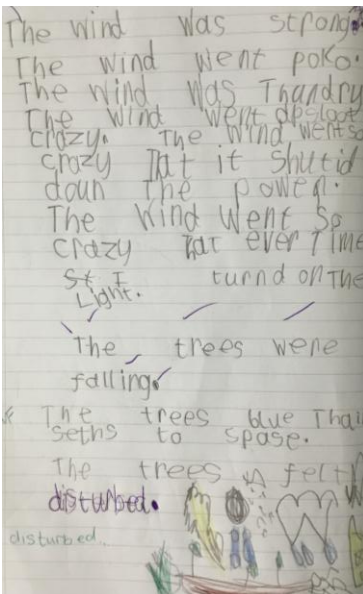 The wind was strong.
The wind went poko.
The wind was Thandry
The wind went apsloot
crazy. The wind wents
crazy Tat it shutid
doun The powen.
The wind went so
crazy Tat ever Time
St I turnd on The
Light.
The trees were
falling.
The trees blue Thair
seths to spase.
The trees felt
disturbed.
disturbed